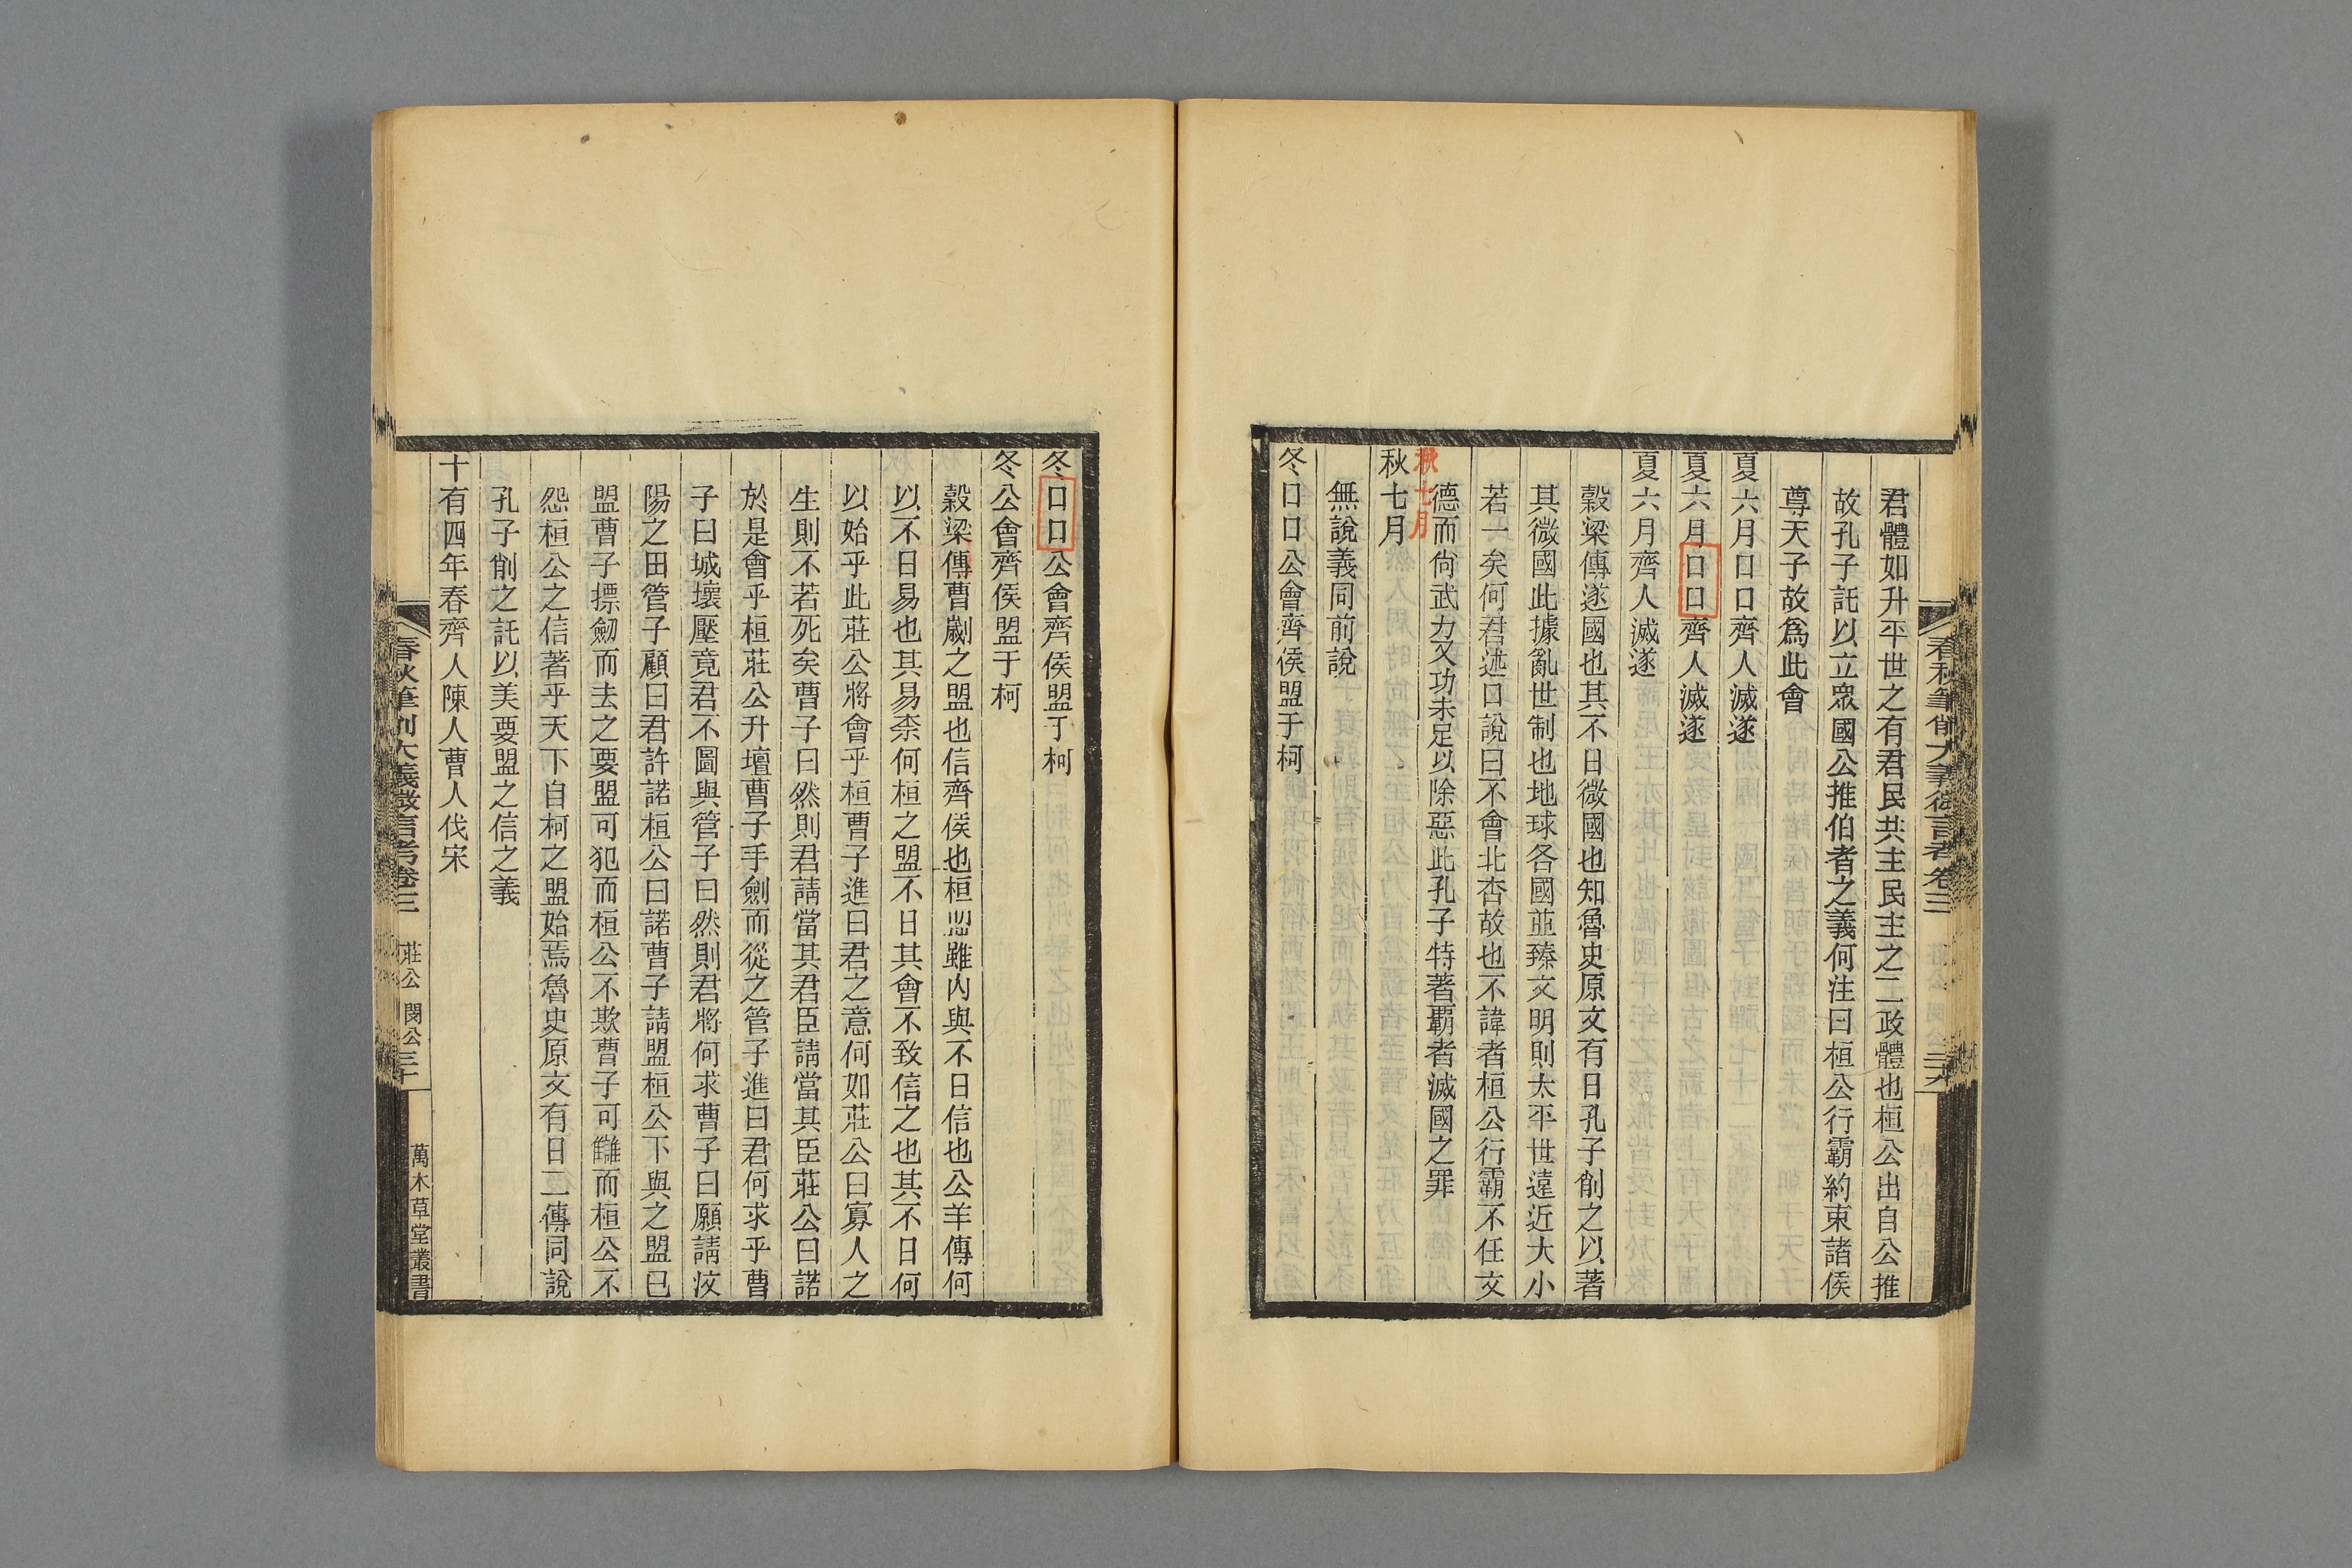 君體如升平世之有君民共主民主之二政體也桓公出自公推
故孔子託以立眾國公推伯者之義何注曰桓公行霸約束諸侯
尊天子故為此會
夏六月口口齊人滅遂
夏六月口口齊人滅遂
夏六月齊人滅遂
穀梁傳遂國也其不日微國也知魯史原文有日孔子削之以著
其微國此據亂世制也地球各國並臻文明則太平世遠近大小
若一矣何君述口說曰不會北杏故也不諱者桓公行霸不任文
德而尙武力又功未足以除惡此孔子特著霸者滅國之罪
秋七月
秋七月
無說義同前說
冬口口公會齊侯盟于柯
春秋筆削大義微言考卷三
冬口口公會齊侯盟于柯
冬公會齊侯盟于柯
穀梁傳曹劌之盟也信齊侯也桓盟雖內與不日信也公羊傳何
以不日易也其易柰何桓之盟不日其會不致信之也其不日何
以始乎此莊公將會乎桓曹子進曰君之意何如莊公曰寡人之
生則不若死矣曹子曰然則君請當其君臣請當其臣莊公曰諾
於是會乎桓莊公升壇曹子手劍而從之管子進曰君何求乎曹
子曰城壞壓竟君不圖與管子曰然則君將何求曹子曰願請汶
陽之田管子顧曰君許諾桓公曰諾曹子請盟桓公下與之盟已
盟曹子摽劒而去之要盟可犯而桓公不欺曹子可讎而桓公不
怨桓公之信著乎天下自柯之盟始焉魯史原文有日二傳同說
孔子削之託以美要盟之信之義
十有四年春齊人陳人曹人伐宋
春秋筆削大義微言考卷三 莊公 閔公 三十 萬木草堂叢書